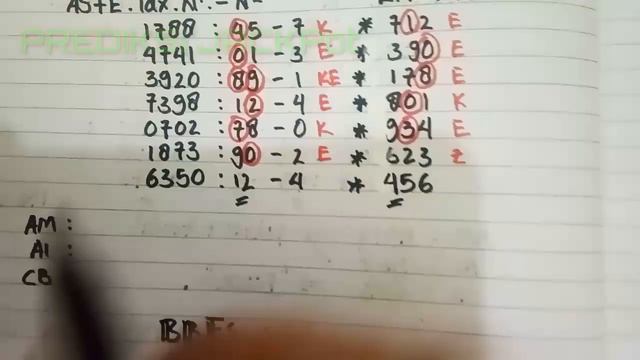 1788 : 45 - 7 K * 712 E
4741 : 01 - 3 E * 390 E
3920 : 89 - 1 KE * 178 E
7398 : 12 - 4 E * 801 K
0702 : 78 - 0 K * 934 E
1873 : 90 - 2 E * 623 z
6350 : 12 - 4 * 456
AM :
AI :
CB
BBF: